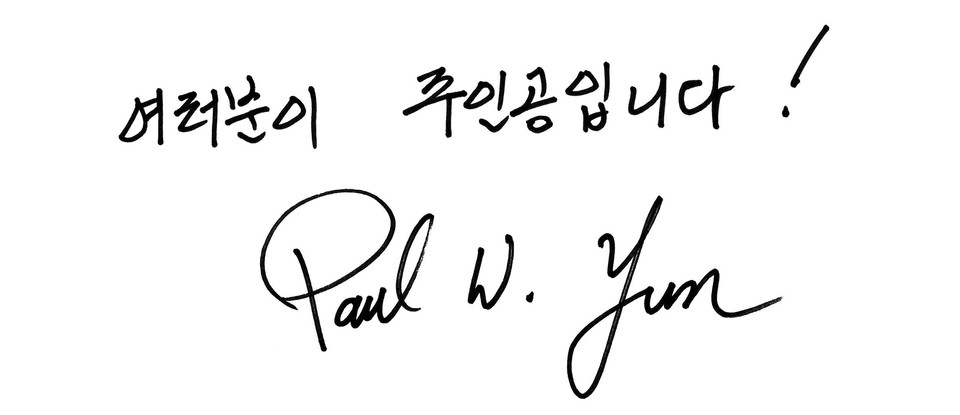 여러분이 주인공입니다!
Paul W. Yun